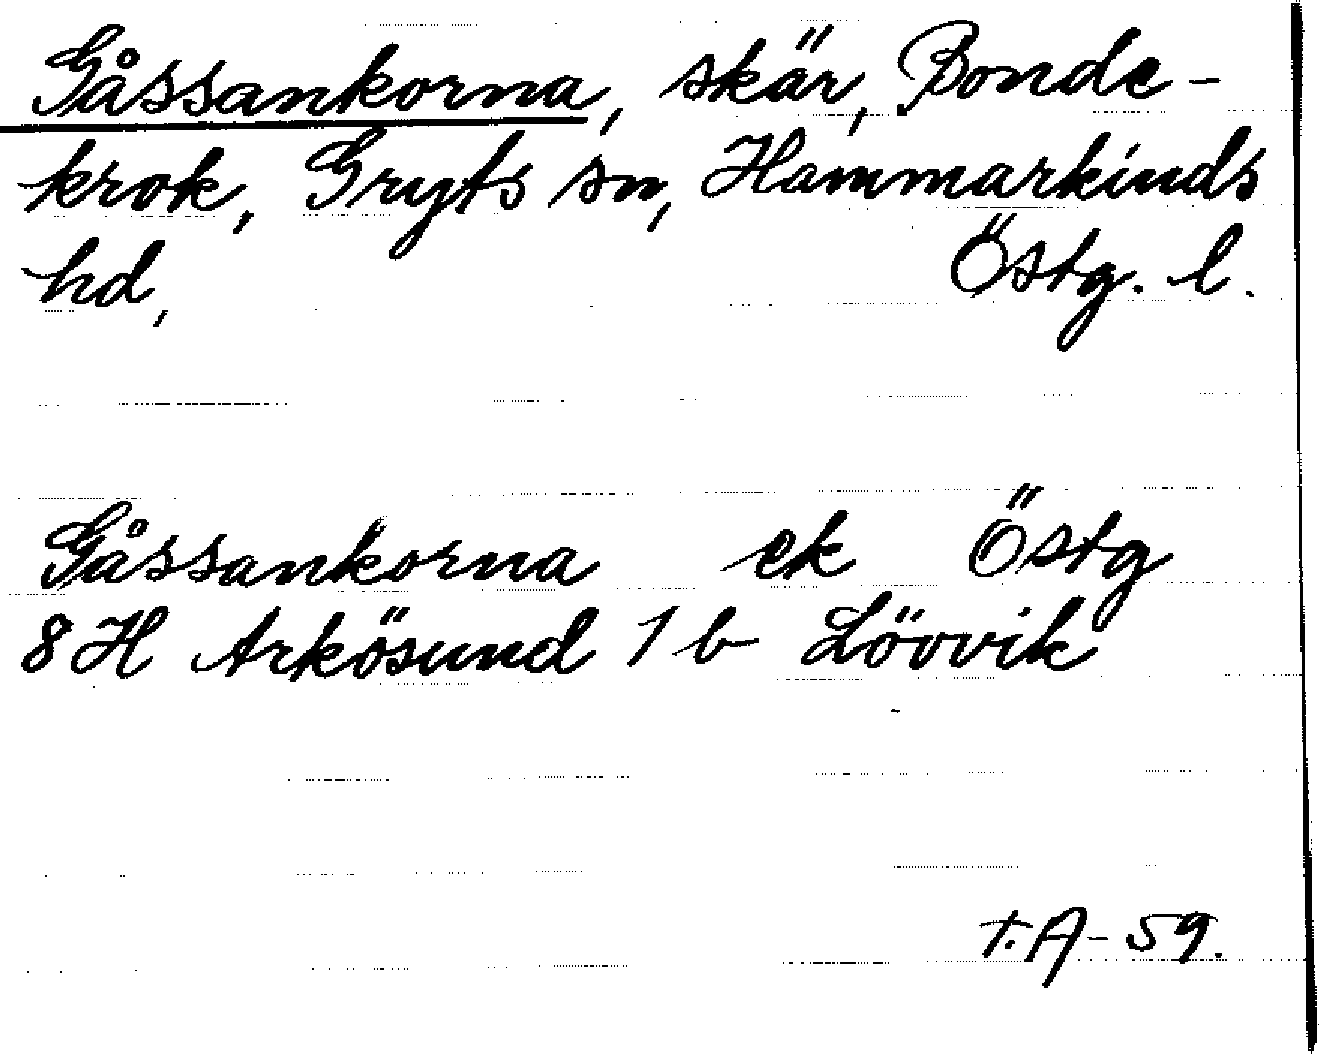 Gåssankorna, skär, Bonde-
krok, Gryts sn, Hammarkinds
hd, Östg. l.
Gåssankorna ek Östg
8H Arkösund 1 b Lövvik
T.A-59.